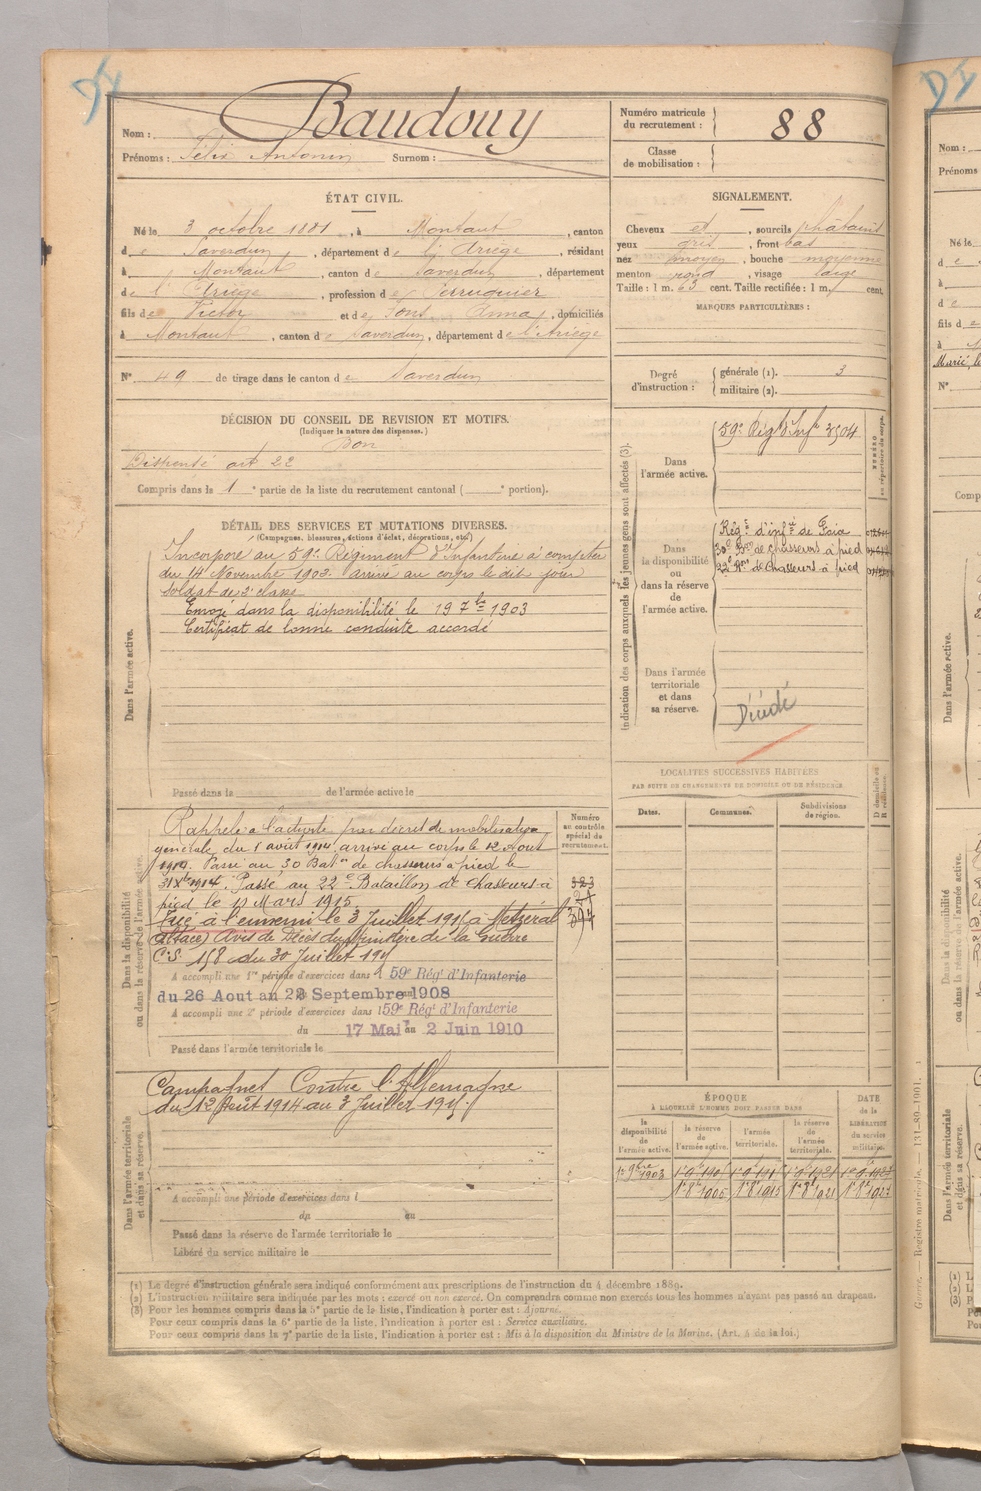 DI
Nom : Baudouy
Prénoms : Félix Antonin Surnom :
Numéro matricule du recrutement : 88
Classe de mobilisation :
ÉTAT CIVIL.
Né le 3 octobre 1881, à Montaut, canton
de Saverdun, département de l'Ariège, résidant
à Montaut, canton de Saverdun, département
de l'Ariège, profession de Perruquier
fils de Victor et de Pons Anna, domiciliés
à Montaut, canton de Saverdun, département de l'Ariège
N° 49 de tirage dans le canton de Saverdun
SIGNALEMENT.
Cheveux et, sourcils châtains
yeux gris, front bas
nez moyen, bouche moyenne
menton rond, visage large
Taille : 1 m. 63 cent. Taille rectifiée : 1 m. cent.
MARQUES PARTICULIÈRES :
Degré d'instruction : générale (1). 3
militaire (2).
DÉCISION DU CONSEIL DE REVISION ET MOTIFS.
(Indiquer la nature des dispenses.)
Bon
Dispensé art 22
Compris dans la 1e partie de la liste du recrutement cantonal ( e portion).
DÉTAIL DES SERVICES ET MUTATIONS DIVERSES.
(Campagnes, blessures, actions d'éclat, décorations, etc.)
Dans l'armée active.
Incorporé au 59e Régiment d'Infanterie à compter
du 14 Novembre 1902. arrivé au corps le dit jour
soldat de 2e classe
Envoyé dans la disponibilité le 19 7bre 1903
Certificat de bonne conduite accordé
Passé dans la de l'armée active le
Indication des corps auxquels les jeunes gens sont affectés (3).
NUMÉRO au répertoire du corps.
Dans l'armée active.
59e Régt d'Infie 3504
Dans la disponibilité ou dans la réserve de l'armée active.
Régt d'infie de Foix
30e Bon de chasseurs à pied
22e Bon de Chasseurs à pied
Dans l'armée territoriale et dans sa réserve.
Décédé
LOCALITÉS SUCCESSIVES HABITÉES
PAR SUITE DE CHANGEMENTS DE DOMICILE OU DE RÉSIDENCE
Dates. Communes. Subdivisions de région. D domicile ou R résidence.
Dans la disponibilité ou dans la réserve de l'armée active.
Numéro au contrôle spécial du recrutement.
323
Rappelé à l'activité par décret de mobilisation
générale du 1 août 1914 arrivé au corps le 12 Aout
1914. Passé au 30 Baton de chasseurs à pied le
31 Xbre 1914. Passé au 22e Bataillon de Chasseurs à
pied le 11 Mars 1915
Tué à l'ennemi le 3 Juillet 1915 à Metzéral
(Alsace) Avis de Décès du Ministère de la Guerre
C.S. 158 du 30 Juillet 1915
A accompli une 1re période d'exercices dans l 59e Régt d'Infanterie
du 26 Aout au 22 Septembre 1908
A accompli une 2e période d'exercices dans l 59e Régt d'Infanterie
du 17 Mai au 2 Juin 1910
Passé dans l'armée territoriale le
Dans l'armée territoriale et dans sa réserve.
Campagnes Contre l'Allemagne
du 12 Août 1914 au 3 Juillet 1915
A accompli une période d'exercices dans l
du au
Passé dans la réserve de l'armée territoriale le
Libéré du service militaire le
ÉPOQUE
À LAQUELLE L'HOMME DOIT PASSER DANS
DATE de la LIBÉRATION du service militaire.
la disponibilité de l'armée active. la réserve de l'armée active. l'armée territoriale. la réserve de l'armée territoriale.
1er 9bre 1903
(1) Le degré d'instruction générale sera indiqué conformément aux prescriptions de l'instruction du 4 décembre 1889.
(2) L'instruction militaire sera indiquée par les mots : exercé ou non exercé. On comprendra comme non exercés tous les hommes n'ayant pas passé au drapeau.
(3) Pour les hommes compris dans la 5e partie de la liste, l'indication à porter est : Ajourné.
Pour ceux compris dans la 6e partie de la liste, l'indication à porter est : Service auxiliaire.
Pour ceux compris dans la 7e partie de la liste, l'indication à porter est : Mis à la disposition du Ministre de la Marine. (Art. 4 de la loi.)
Guerre. — Registre matricule. — 131-89-1901.
DI
Nom :
Prénoms
Né le
fils d
Marié, le
N°
Comp
Dans l'armée active.
Dans la disponibilité ou dans la réserve de l'armée active.
Dans l'armée territoriale et dans sa réserve.
(1) L
(2) L
(3) P